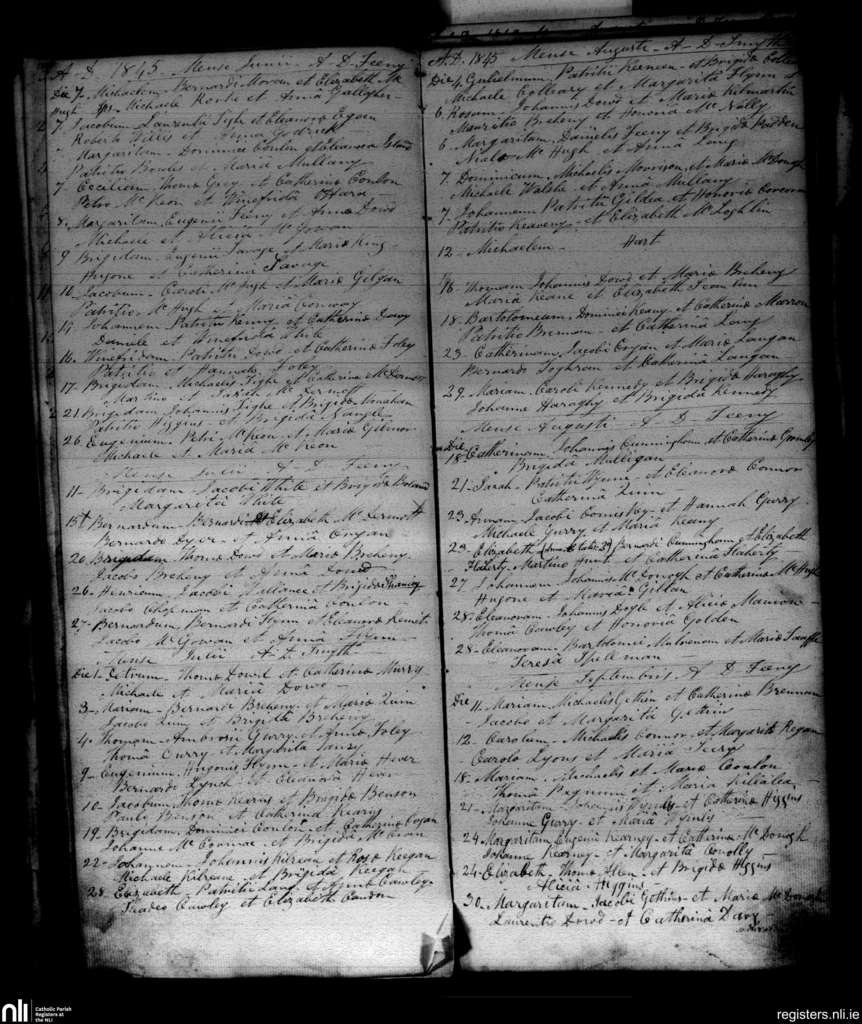 A. D. 1845 Mense Junii - A - D - Feeny
Die 7. Michaelem - Bernardi Moran et Elizabeth Mc
Hugh Sps. Michaele Rorke et Anna Gallagher
7 Jacobum Laurentii Tighe et Eleanora Egan
Roberto Willis et Anna
Margaritam - Dominici Conlon et Eleanora
Patritio Bowles et Maria Mullany
7 Ceciliam Thoma Grey et Catherina Conlon
Petro McKeon et Winefrida O'Hara
8. Margaritam Eugenii Feeny et Anna Dowd
Michaele et Alicia McGowan
9 Brigidam - Eugenii Savage et Maria King -
Hugone et Catherina Savage
10 Jacobum - Caroli McHugh et Maria Gilgan
Patritio McHugh - Maria Conway
14 Johannem Patritii Kenny et Catherina Davy
Daniele et Winefrida
16. Winefridam - Patritii Dowd et Catherina Foley
Patritio et Hannah Foley
17. Brigidam, Michaelis Tighe et Catherina McDermott
Martino et Sarah McDermott
21 Brigidam Johannis Tighe et Brigida Monahan
Patritio Higgins et Brigida
26 Eugenium Petri McKeon et Maria Gilmor
Michaele et Maria McKeon
Mense Julii A - D - Feeny
11 - Brigidam - Jacobi White et Brigida Boland
Margarita White
15 Bernardum - Bernardi et Elizabeth McDermott
Bernardo Dyer et Anna Cryan
20 Brigidam Thoma Dowd et Maria Breheny
Jacobo Breheny et Anna Dowd
26. Henricum Jacobi Vallance et Brigida
Jacobo Chapman et Catherina Conlon
27. Bernardum Bernardi Flynn et Eleanora
Jacobo McGowan et Anna Flynn
Mense Julii A. D. Smyth
Die 1 - Petrum - Thoma Dowd et Catherina Murry
Michaele et Maria Dowd
3 - Mariam - Bernardi Breheny et Maria Quin
Jacobo Quin et Brigida Breheny
4. Thomam Ambrosii Curry et Anna Foley
Thoma Curry et Margarita
9 - Eugenium Hugonis Flynn et Maria Hever
Bernardo Lynch et Eleanora Hever
10 - Jacobum Thoma Kearns et Brigida Benson
Paulo Benson et Catherina Kearns
19. Brigidam Dominici Conlon et Catherina Cogan
Johanne McCormac et Brigida
22 - Johannem - Johannis Kilrean et Rosa Keegan
Michaele Kilreane et Brigida Keegan
28 Elizabeth Patritii Lang et Anna Cawley
Thadeo Cawley et Elizabeth Condon
A. D. 1845 Mense Augusti - A - D - Smyth
Die 4. Gulielmum, Patritii Keenen et Brigida
Michaele Colleary et Margarita Flynn
6. Rosam Johannis Dowd et Maria Kilmartin
Mauritio Breheny et Honoria McNally
6 Margaritam, Danielis Feeny et Brigida
Niale McHugh et Anna Lang
7. Dominicum, Michaelis Morrison et Maria McDonogh
Michaele Walshe et Anna Mullany
7. Johannem Patritii Gildea et Honoria Corcoran
Patritio Keaveny et Elizabeth McLoghlin
12 - Michaelem - Hart
16. Thomam Johannis Dowd et Maria Breheny
Maria Keane et Elizabeth Scanlon
18 - Bartolomeum - Dominici Keany et Catherina Marron
Patritio Brennan et Catherina Lang
23 - Catherinam, Jacobi Cryan et Maria Langan
Bernardo Soghran et Catherina Langan
29. Mariam - Caroli Kennedy et Brigida Haraghy
Johanne Haraghy et Brigida Kennedy
Mense Augusti A - D - Feeny
Die 18. Catherinam Johannis Cunningham et Catherina
Brigida Mulligan
21 - Sarah - Patritii Wynne et Eleanora Connor
Catherina Quin
23. Annam Jacobi et Hannah Gurry
Michaele Gurry et Maria Keany
23 - Elizabeth Bernardi Cunningham et Elizabeth
Flaherty Martino Hunt et Catherina Flaherty
27 Johannem Johannis McDonogh et Catherina McHugh
Hugone et Maria Gillan
28. Eleanoram Johannis Doyle et Alicia Mannion
Thoma Cawley et Honoria Golden
28 - Eleanoram Bartolomei Mulvenam et Maria
Teresa Spelman
Mense Septembris A. D. Feeny
Die 11. Mariam, Michaelis Gettins et Catherina Brennan
Jacobo et Margarita Gettins
12 - Carolum - Michaelis Connor et Margarita Regan
Carolo Lyons et Maria
18. Mariam Michaelis et Maria Conlon
Thoma et Maria Killalea
21 - Margaritam Johannis Wynds et Catherina Higgins
Johanne Geary et Maria Wynds
24. Margaritam Eugenii Kearney et Catherina McDonogh
Johanne Kearney et Margarita Conolly
24. Elizabeth Thoma Allen et Brigida Higgins
Alicia Higgins
30. Margaritam - Jacobi Gettins et Maria McDonogh
Laurentio Dowd - et Catherina Davy
nli
Catholic Parish
Registers at
the NLI
registers.nli.ie